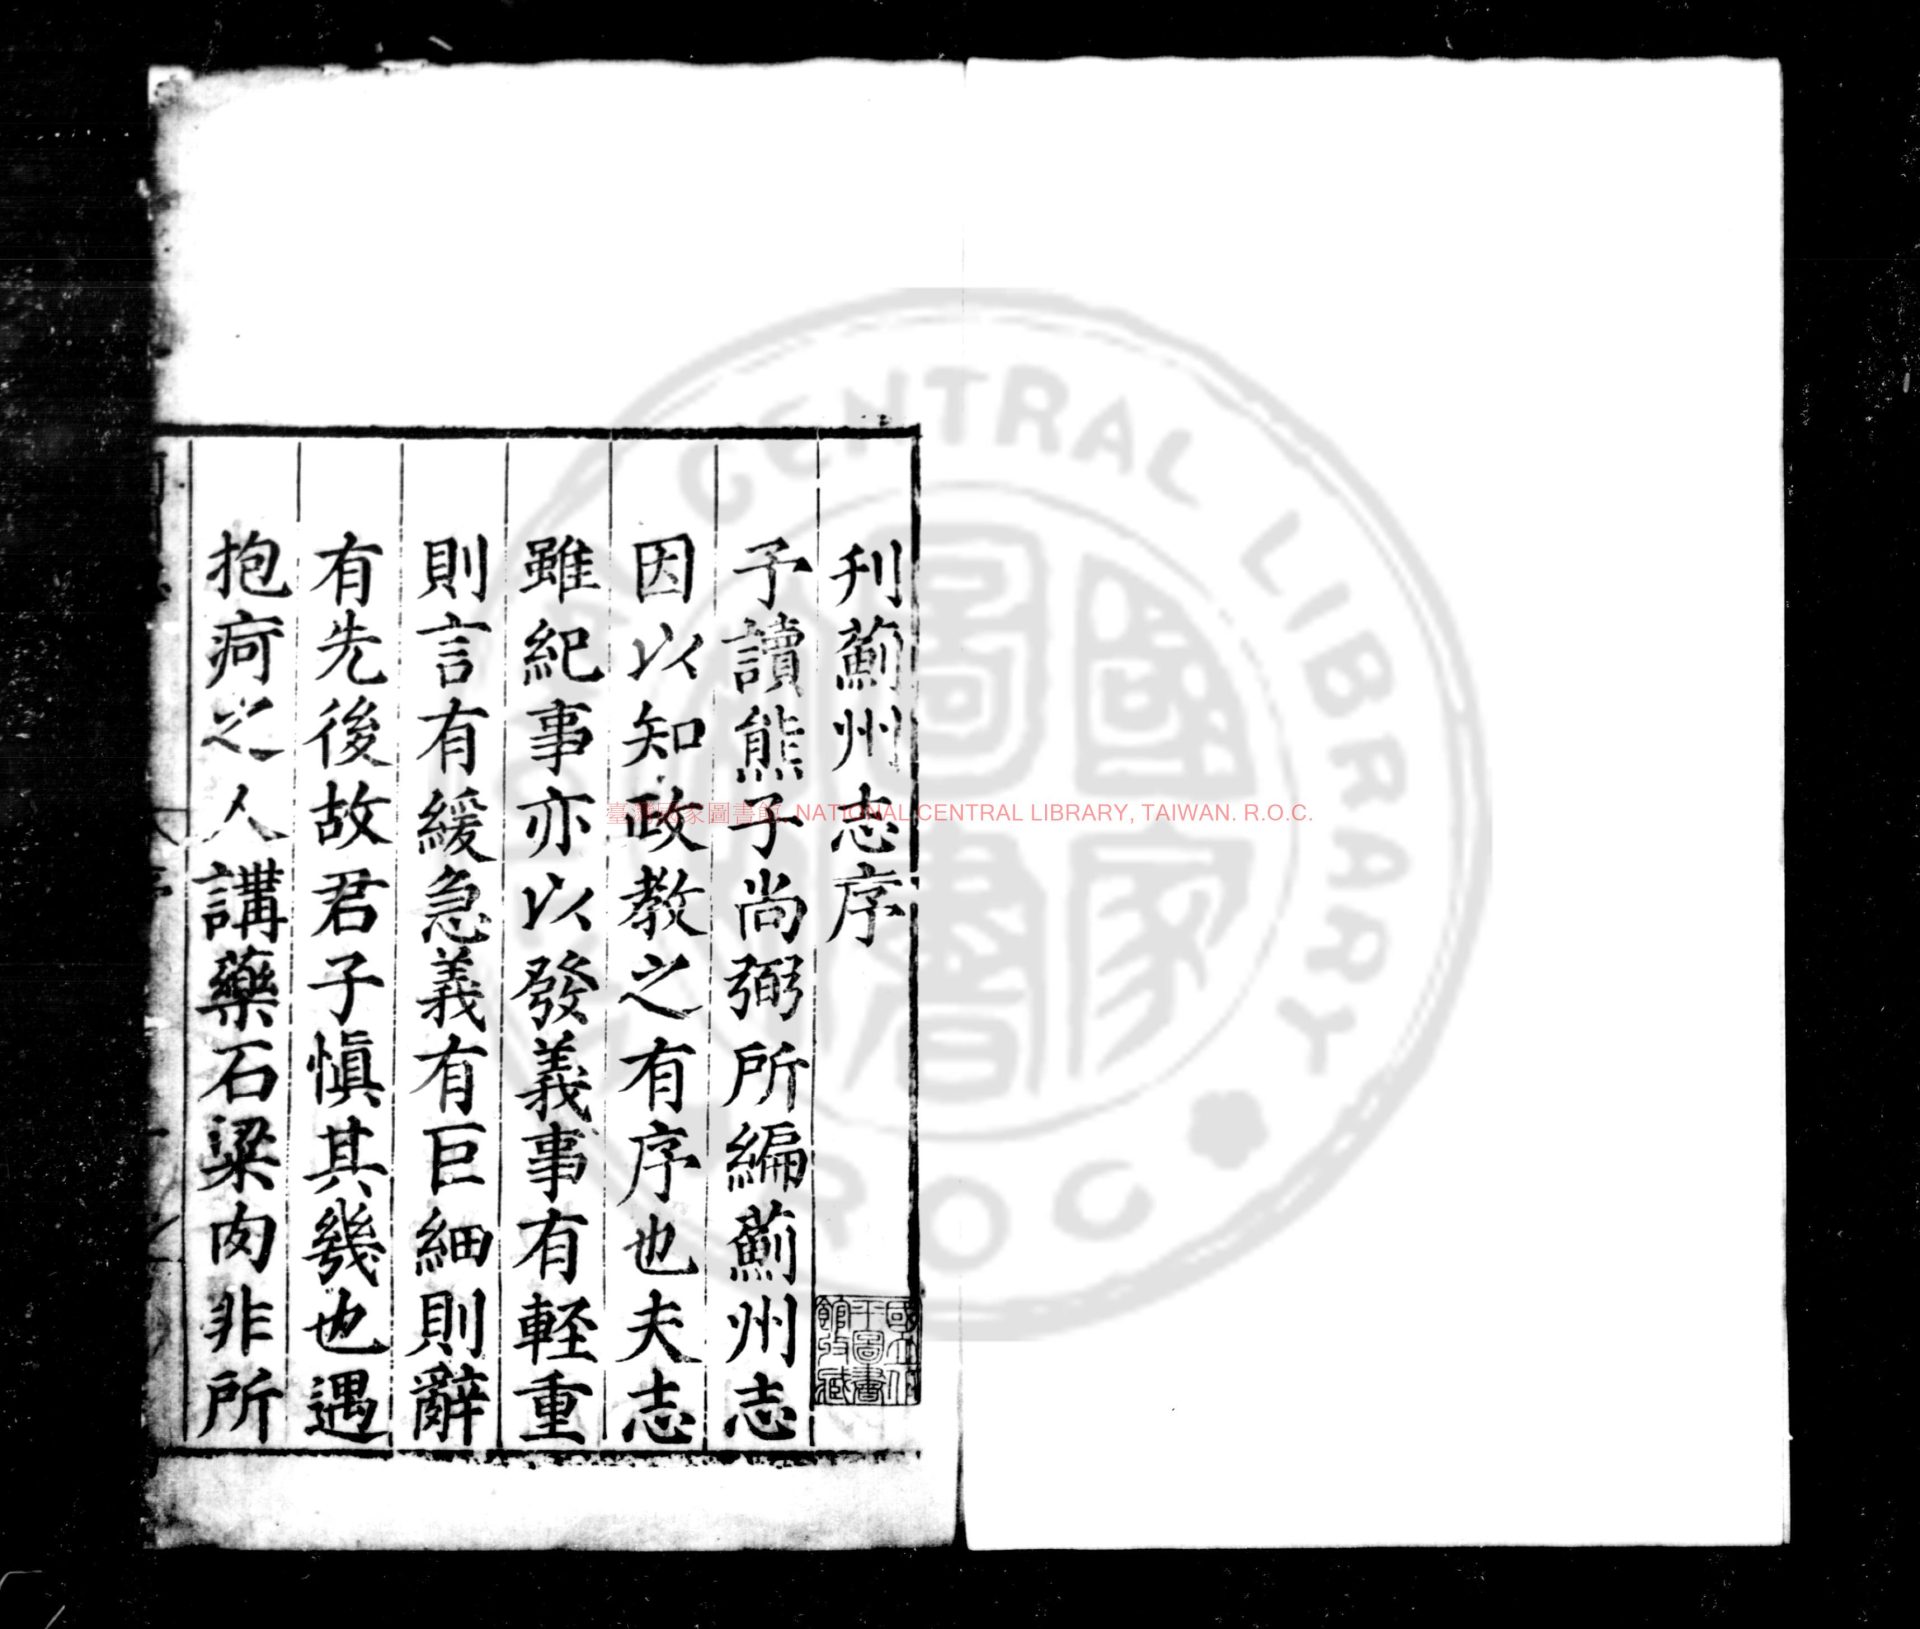 刋薊州志序
予讀熊子尚弼所編薊州志
因以知政教之有序也夫志
雖紀事亦以發義事有輕重
則言有緩急義有巨細則辭
有先後故君子慎其幾也遇
抱疴之人講藥石粱肉非所
國立北平圖書館收藏
臺灣國家圖書館, NATIONAL CENTRAL LIBRARY, TAIWAN. R.O.C.
CENTRAL LIBRARY
R O C
國家圖書